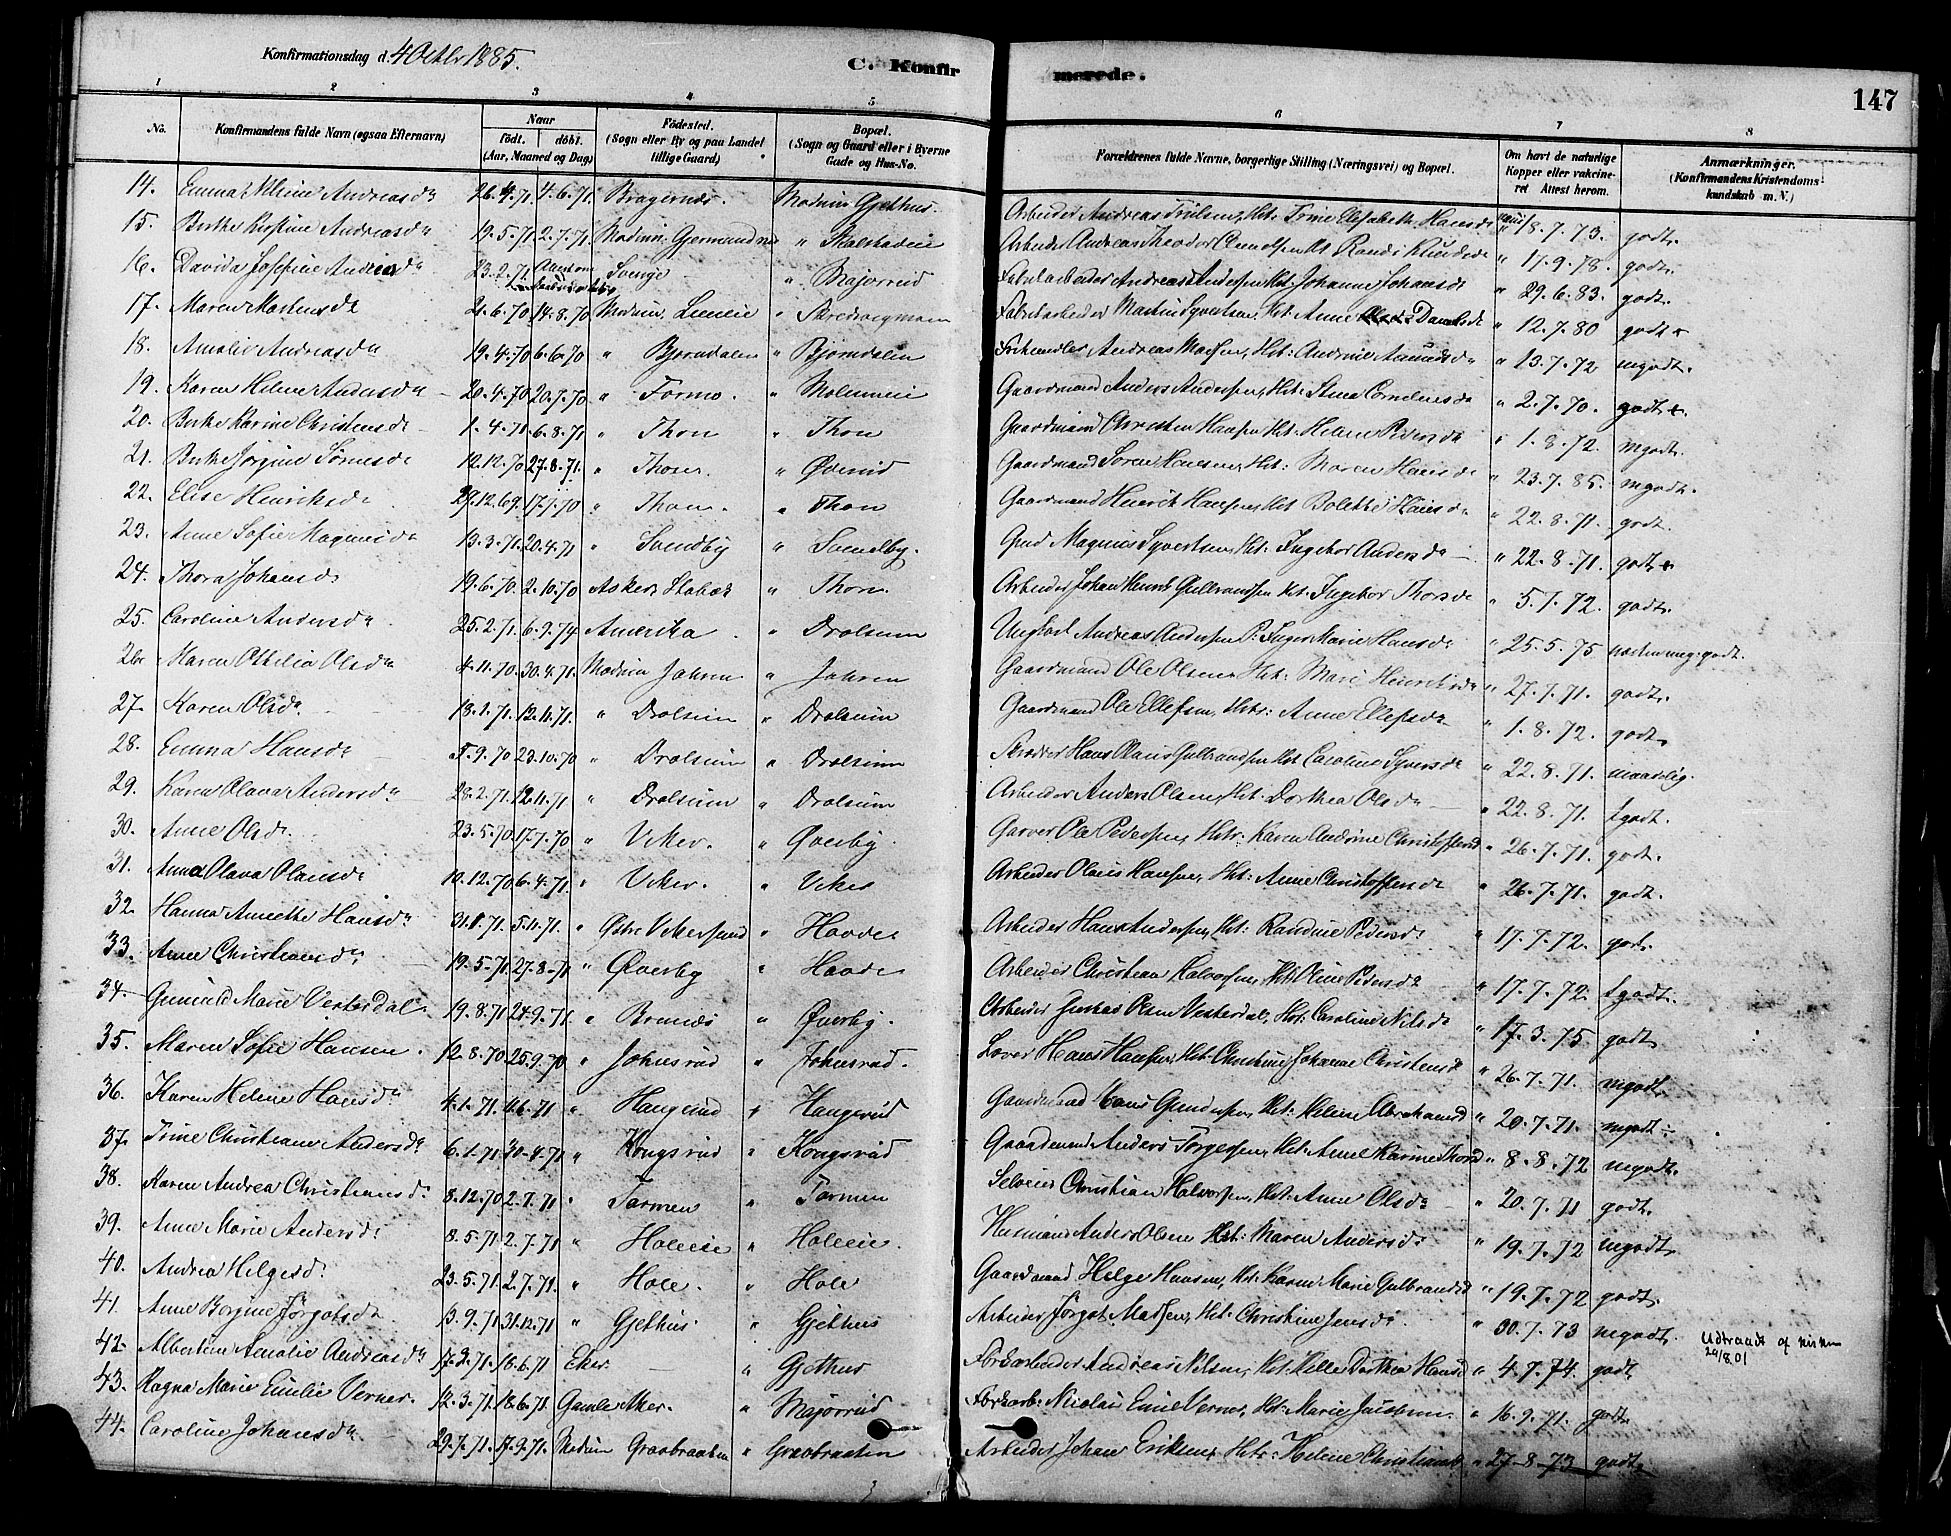 Konfirmationsdag d. 4 Octbr 1885.
C. Konfirmerede.
147
1 2 3 4 5 6 7 8
No. Konfirmandens fulde Navn (ogsaa Efternavn) Naar født. døbt. (Aar, Maaned og Dag) Fødested. (Sogn eller By og paa Landet tillige Gaard) Bopæl. (Sogn og Gaard eller i Byerne Gade og Hus-No. Forældrenes fulde Navne, borgerlige Stilling (Næringsvei) og Bopæl. Om havt de naturlige Kopper eller vakcineret Attest herom. Anmærkninger. (Konfirmandens Kristendomskundskab m. V.)
14. Emma Andreasdr 26.4.71 4.6.71 Bragernes Modum Gjethus. Arbeider Andreas Hst: Trine Elisabeth Hansdr 18.7.73. godt.
15. Birthe Kristine Andreasdr 19.5.71 2.7.71 Modum " Skalstadeie Arbeider Andreas Theodor Hst Randi Knudsdr " 17.9.78. godt.
16. Davida Josefine Andreasdr 23.2.71 Svenge " Majorrud Fabrikarbeider Andreas Andersen Hst: Johanne Johansdr " 29.6.83. godt.
17. Maren Martinsdr 21.6.70 14.8.70 Modum, " Fabrikarbeider Martin Syvertsen, Hst: Anne Danielsdr " 12.7.80 godt
18. Amalie Andreasdr 19.4.70 6.6.70 " Bjørndalen " Bjørndalen Andreas Madsen, Hst: Andrine " 13.7.72 mgodt.
19. Karen Helene Andersdr 20.4.70 20.7.70 " Formo. " Gaardmand Anders Andersen, Hst: Stina Corneliusdr " 2.7.70. godt.
20. Birthe Karine Christensdr 1.4.71 6.8.71 " Thon " Thon Gaardmand Christen Hansen Hst: Helene Pedersdr " 1.8.72. mgodt.
21. Birthe Jørgine Sørensdr 12.12.70 27.8.71. " Thon. " Øverud Gaardmand Søren Hansen, Hst: Maren Hansdr " 23.7.85. mgodt.
22. Elise Henriksdr 29.12.69. 17.7.70 " Thon. " Thon Gaardmand Henrik Hansen, Hst Bolette Hansdr " 22.8.71. godt.
23. Anne Sofie Magnusdr 13.3.71. 20.4.71 " Svendby " Svendby. Gmd Magnus Syvertsen, Hst: Ingebor Andersdr " 22.8.71. godt
24. Thora Johansdr 19.6.70. 2.10.70 Asker Stabæk " Thon. Arbeider Johan Henrik Gulbrandsen Hst: Ingebor Thorsdr " 5.7.72. godt.
25. Caroline Andersdr 25.2.71. 6.9.74 Amerika " Drolsum Ungkarl Andreas Andersen P. Inger Marie Hansdr " 25.5.75 næsten meg. godt.
26. Maren Othilia Olsdr 4.11.70. 30.4.71 Modum Jahren " Jahren Gaardmand Ole Olsen, Hst: Mari Henriksdr " 27.7.71. godt.
27. Karen Olsdr 18.1.71. 12.11.71. " Drolsum " Drolsum Gaardmand Ole Ellefsen, Hst: Anne Ellefsdr " 1.8.72. godt.
28. Emma Hansdr 5.9.70 23.10.70 " Drolsum " Drolsum Skrædder Hans Olaus Gulbrandsen Hst Caroline Syversdr " 22.8.71. maadelig.
29. Karen Olava Andersdr 28.2.71. 12.11.71 " Drolsum " Drolsum Arbeider Anders Olsen, Hst: Dorthea Olsdr " 22.8.71. tgodt.
30. Anne Olsdr 23.5.70 17.7.70 " Viker. " Øverby. Garver Ole Pedersen, Hst: Karen Andrine Christoffersd " 26.7.71. godt.
31. Anna Olava Olausdr 10.12.70 6.4.71. " Viker. " Viker Arbeider Olaus Hansen, Hst: Anne Christoffersdr " 26.7.71. godt.
32. Hanna Annethe Hansdr 31.1.71. 5.11.71. " Østre Vikersund " Hovde Arbeider Hans Andersen, Hst: Randine Pedersdr " 17.7.72. godt.
33. Anne Christiansdr 19.5.71. 27.8.71 " Øverby " Hovde Arbeider Christian Halvorsen, Hst: Oline Pedersdr " 17.7.72. tgodt.
34. Gunhild Marie Vesterdal. 19.8.71 24.9.71. " Brunæs " Øverby. Arbeider Gustav Olsen Vesterdal, Hst: Caroline Nilsdr " 17.3.75 godt
35. Maren Sofie Hansen. 12.8.70 25.9.70 " Johnsrud " Johnsrud. Hans Hansen, Hst: Christine Johanne Christensdr " 26.7.71. mgodt.
36. Karen Helene Hansdr 4.1.71. 11.6.71 " Haugerud " Haugerud Gaardmand Hans Gundersen, Hst: Helene Abrahamsd " 20.7.71. mgodt.
37. Trine Christiane Andersdr 6.1.71 30.4.71 " Kongsrud " Kongsrud Gaardmand Anders Torgersen, Hst: Anne Karine Thorsd " 8.8.72 mgodt.
38. Karen Andrea Christiansdr 8.12.70 2.7.71 " Tarmen " Tarmen Selveier Christian Halvorsen, Hst: Anne Olsdr " 20.7.71 godt.
39. Anne Marie Andersdr 8.5.71. 2.7.71 " Holeeie " Holeeie. Husmand Anders Olsen Hst: Maren Andersdr " 19.7.72 mgodt.
40. Andrea Helgesdr 23.5.71. 2.7.71. " Hole. " Hole Gaardmand Helge Hansen, Hst: Karen Marie Gulbrandsd " 19.7.72 godt.
41. Anne Borgine Jørgotsdr 13.9.71 31.12.71 " Gjethus " Gjethus Arbeider Jørgot Madsen, Hst: Christine Jensdr " 30.7.73 mgodt. Udtraadt af kirken 29/8.01
42. Albertine Amalie Andreasdr 17.3.71. 18.6.71 Eker " Gjethus Andreas Nilsen, Hst: Helle Dorthea Hansd " 4.7.74. godt
43. Ragna Marie Emilie Verner. 12.3.71. 18.6.71. Gamle Aker. " Majorrud Nicolai Emil Verner, Hst: Marie Jacobsen. " 16.9.71. godt.
44. Caroline Johansdr 29.7.71. 17.9.71. Modum Graabraaten " Graabraaten Arbeider Johan Eriksen, Hst: Helene Christiansd. " 27-8-73 godt.